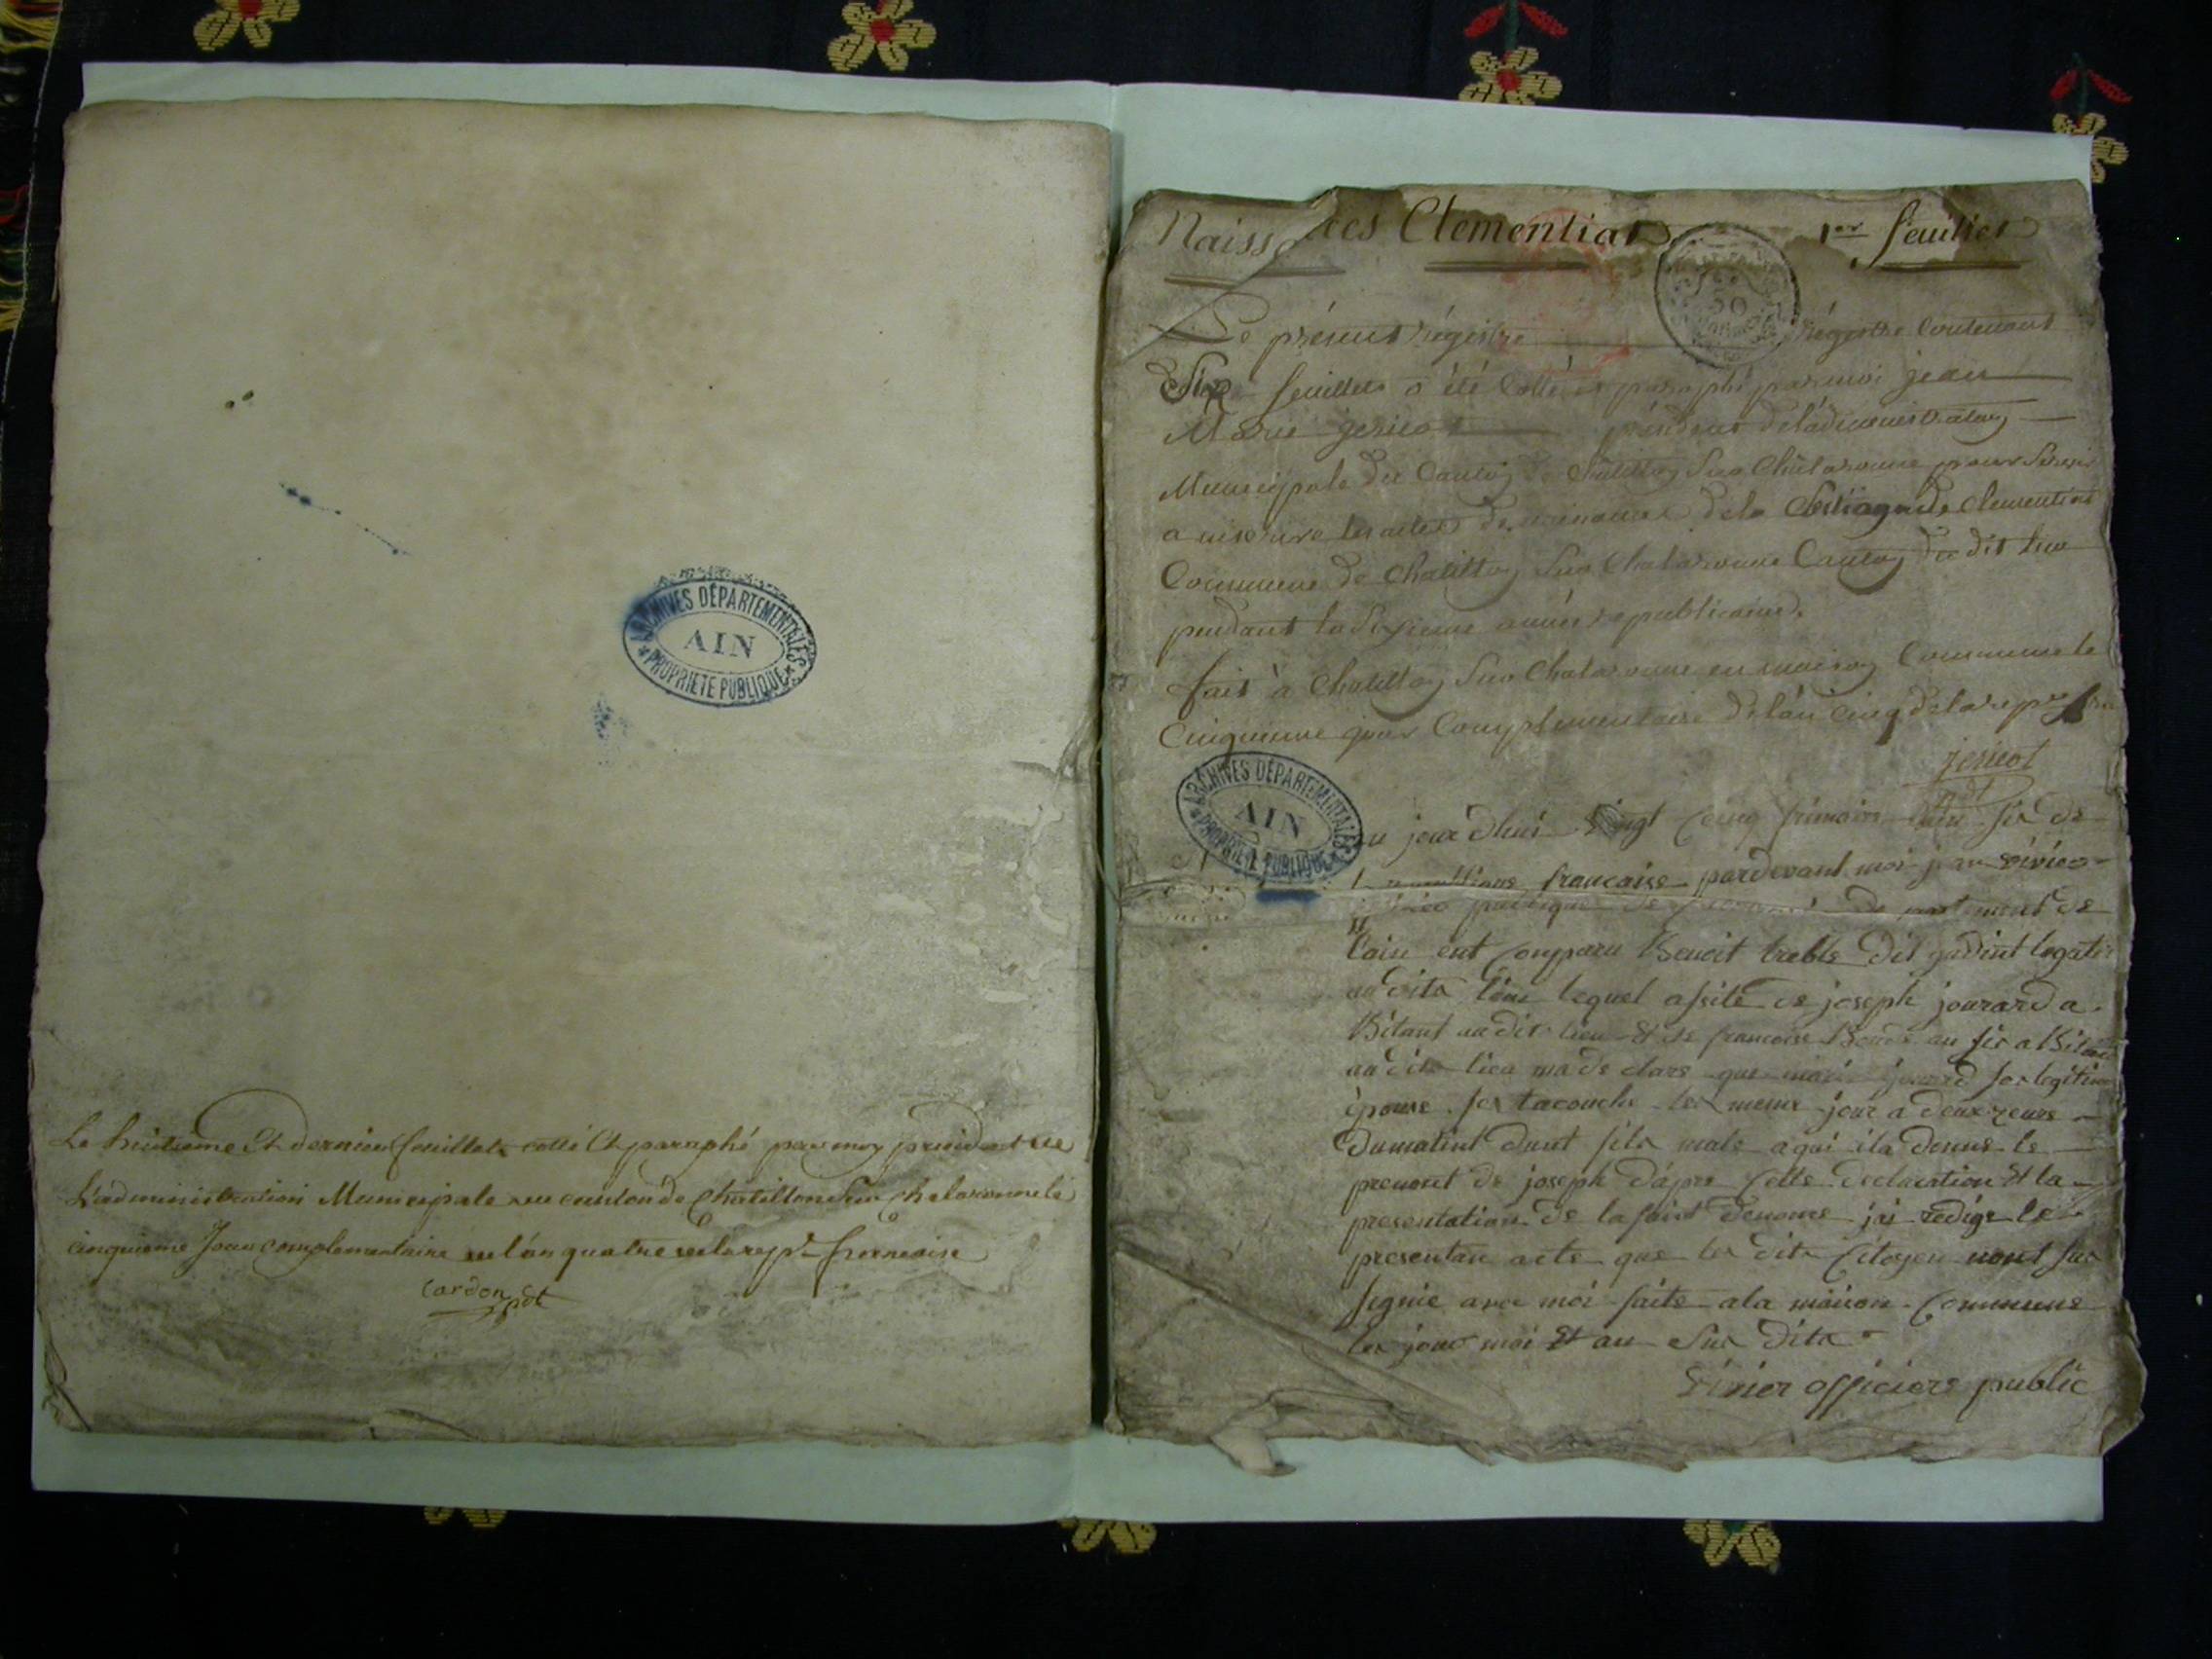 ARCHIVES DÉPARTEMENTALES
AIN
PROPRIÉTÉ PUBLIQUE
Le huitieme Et dernier feuillet cotté Et paraphé par moy president de
L'administration Municipale du canton de Chatillon Sur Chalaronne le
cinquieme Jour complementaire de l'an quatre de la rep.e francaise
Cardon pdt
Naissances Clementiat 1er feuillet
Le présent régistre Régistre Contenant
Six feuillets a été Cotté et paraphé par moi jean
Marie jericot président de l'administration
Municipale du Canton de Chatillon Sur Chalaronne pour Servir
a inscrire les actes de naissance de la Section de Clementiat
Commune de Chatillon Sur Chalaronne Canton du dit lieu
pendant la Sixieme année republicaine.
fait à Chatillon Sur Chalaronne en maison Commune le
Cinquieme jour Complementaire de l'an cinq de la rep
jericot
pdt
ARCHIVES DÉPARTEMENTALES
AIN
PROPRIÉTÉ PUBLIQUE
au jour dhui Vingt Cinq frimaire lan six de
la republique francaise pardevant moi jean
officier publique de departement de
lain ent Comparu Benoit treble dit gadint
audita lieu lequel assité de joseph jourard a
Bitant au dit lieu Et de francoise au sis a Bitant
audita lieu ma de clare que jourard sa legitime
épouse sest tacouche le meme jour a deux zeure
Dumatint dunt fila male a qui ila donne le
prenont de joseph dapre sette declaration Et la
presentation de lafaint denome jai redige le
presentan acte que les dita Citoyen nont sus
signie avec moi faite a la maison Commune
les jour moi Et an Sus dita
officiere public